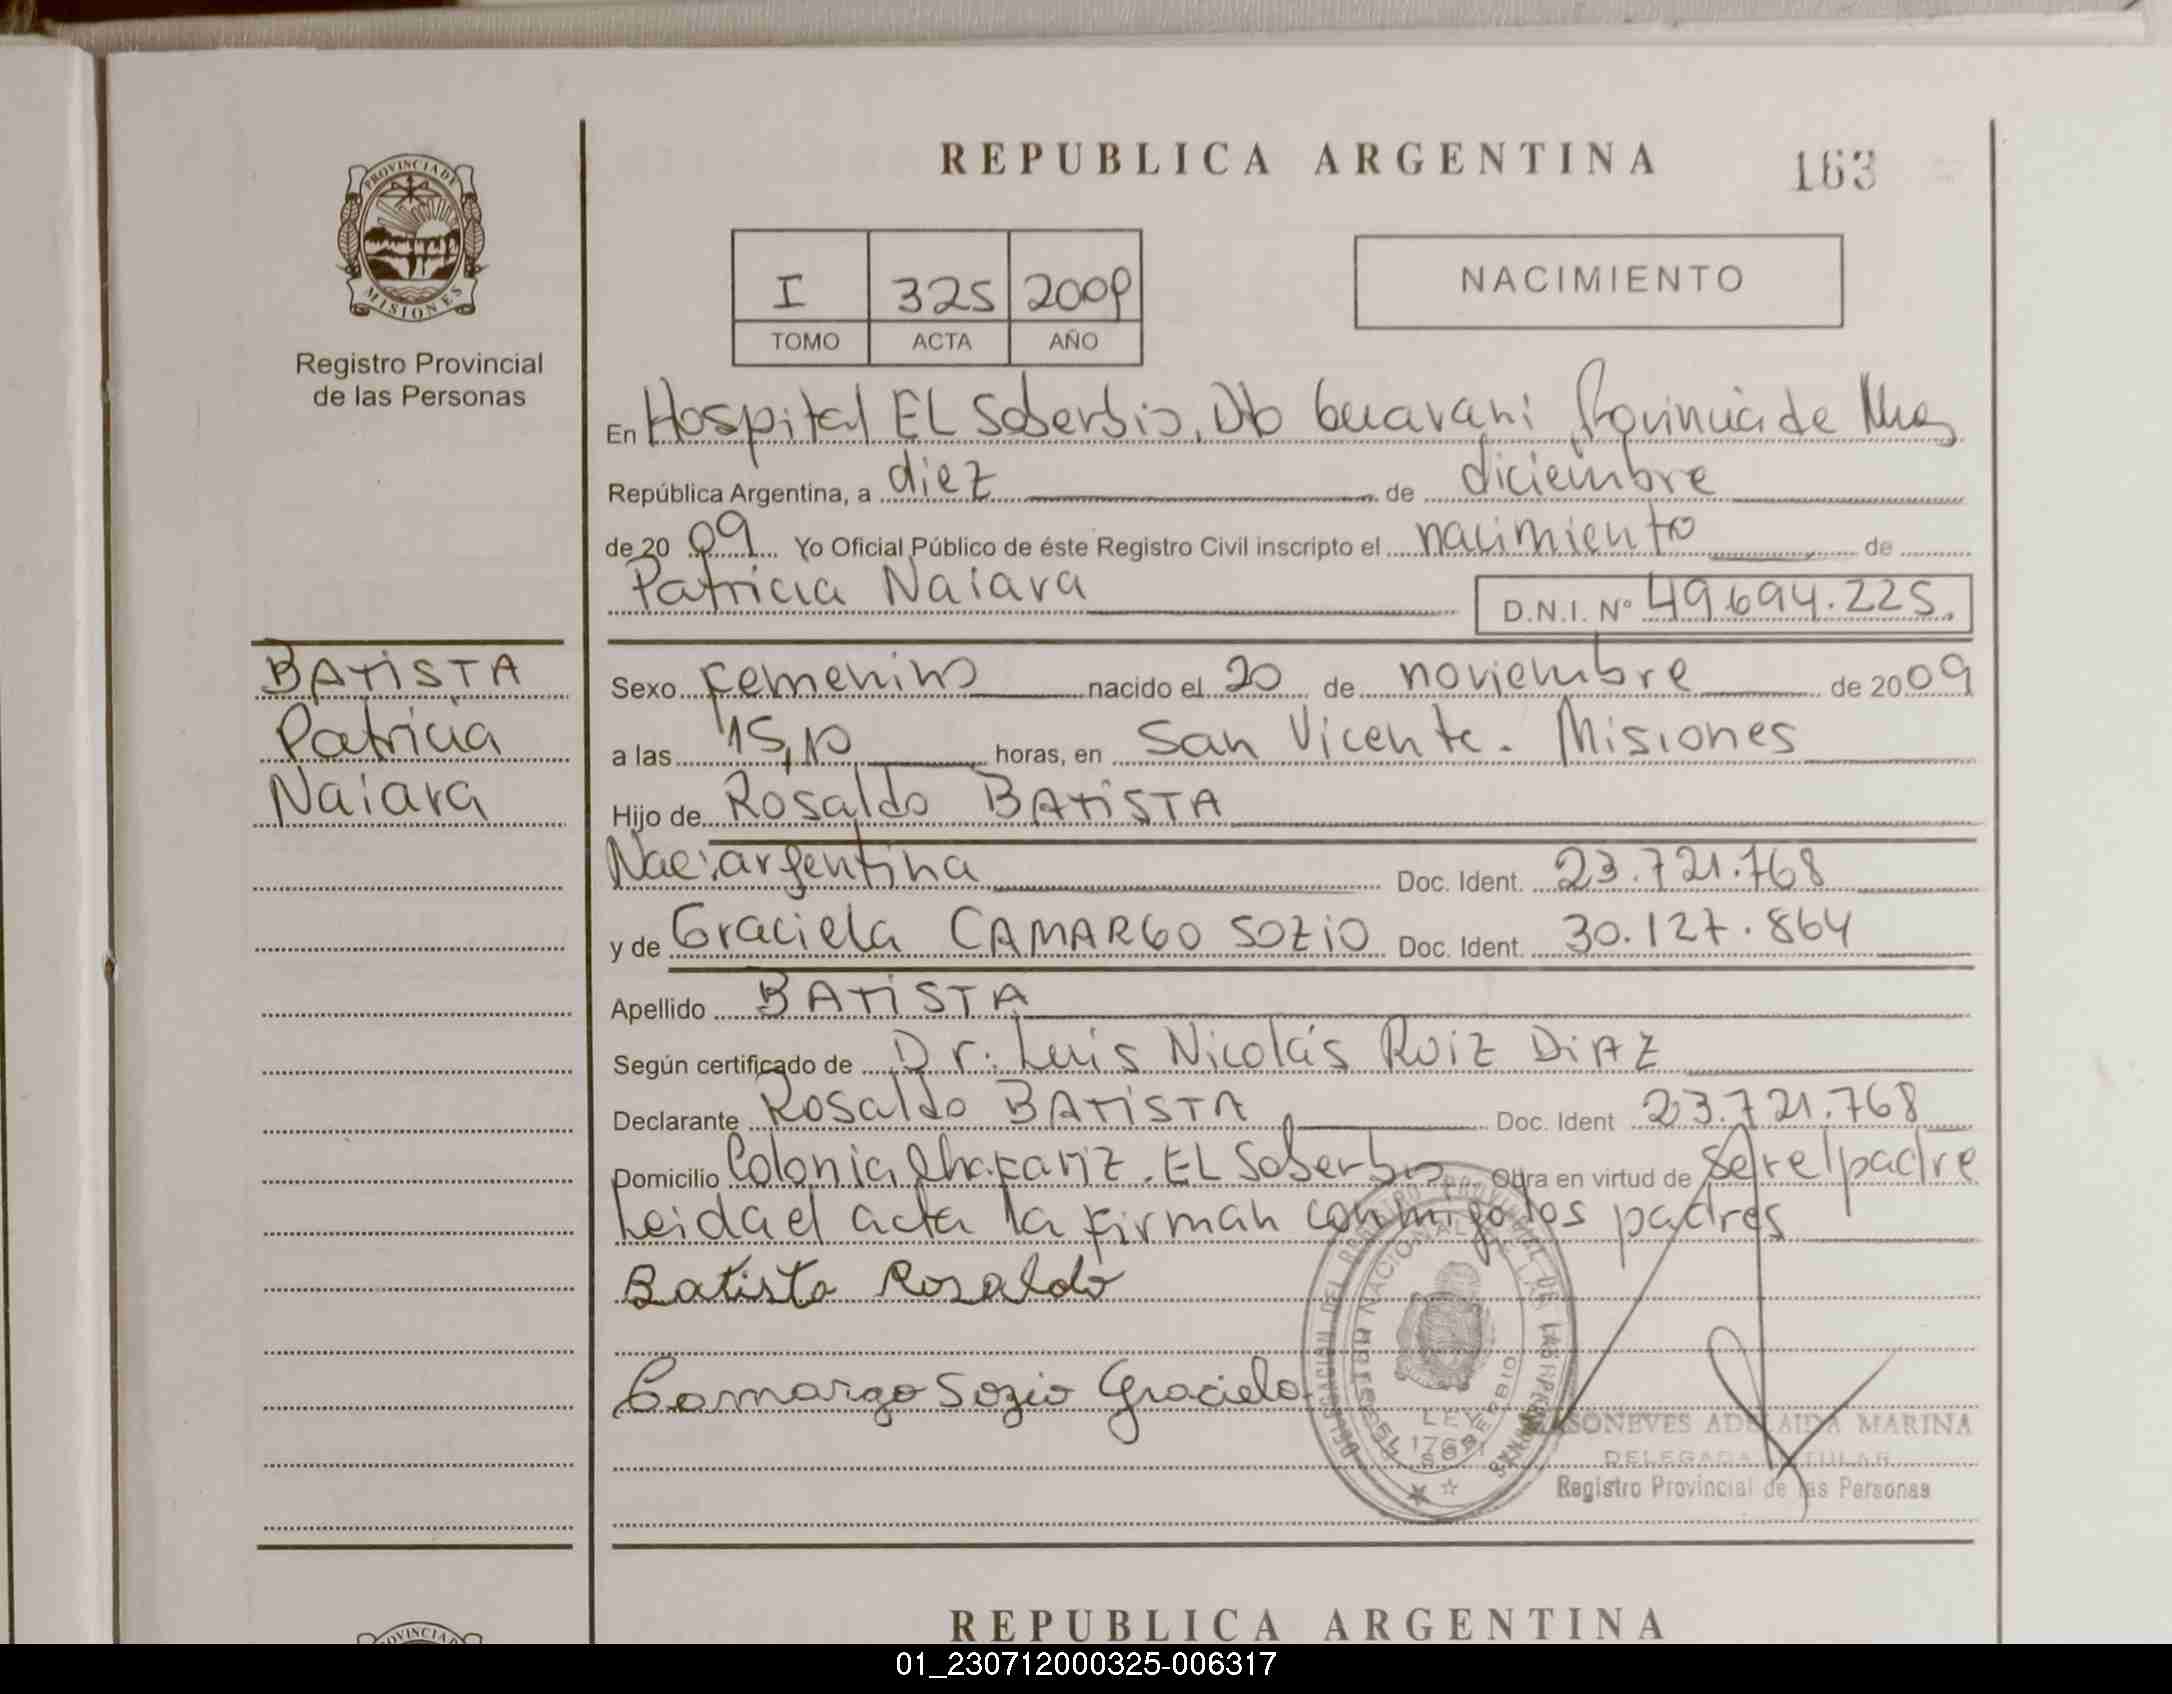 REPUBLICA ARGENTINA
163
PROVINCIA DE
MISIONES
Registro Provincial
de las Personas
I 325 2009
TOMO ACTA AÑO
NACIMIENTO
En Hospital EL Soberbio, Dto Guarani Provincia de Mnes
República Argentina, a diez de diciembre
de 20 09 Yo Oficial Público de éste Registro Civil inscripto el nacimiento de
Patricia Naiara D.N.I. Nº 49.694.225.
BATISTA
Patricia
Naiara
Sexo femenino nacido el 20 de noviembre de 20 09
a las 15,10 horas, en San Vicente. Misiones
Hijo de Rosaldo BATISTA
Nac: argentina Doc. Ident. 23.721.768
y de Graciela CAMARGO SOZIO Doc. Ident. 30.127.864
Apellido BATISTA
Según certificado de Dr. Luis Nicolás Ruiz DIAZ
Declarante Rosaldo BATISTA Doc. Ident 23.721.768
Domicilio Colonia EL Soberbio Obra en virtud de ser el padre
Leida el acta la firman conmigo los padres
Batista Rosaldo
Camargo Sozio Graciela
DELEGACION DEL REGISTRO PROVINCIAL DE LAS PERSONAS
LEY
SOBERBIO
ADELAIDA MARINA
DELEGADA TITULAR
Registro Provincial de las Personas
PROVINCIA
REPUBLICA ARGENTINA
01_230712000325-006317